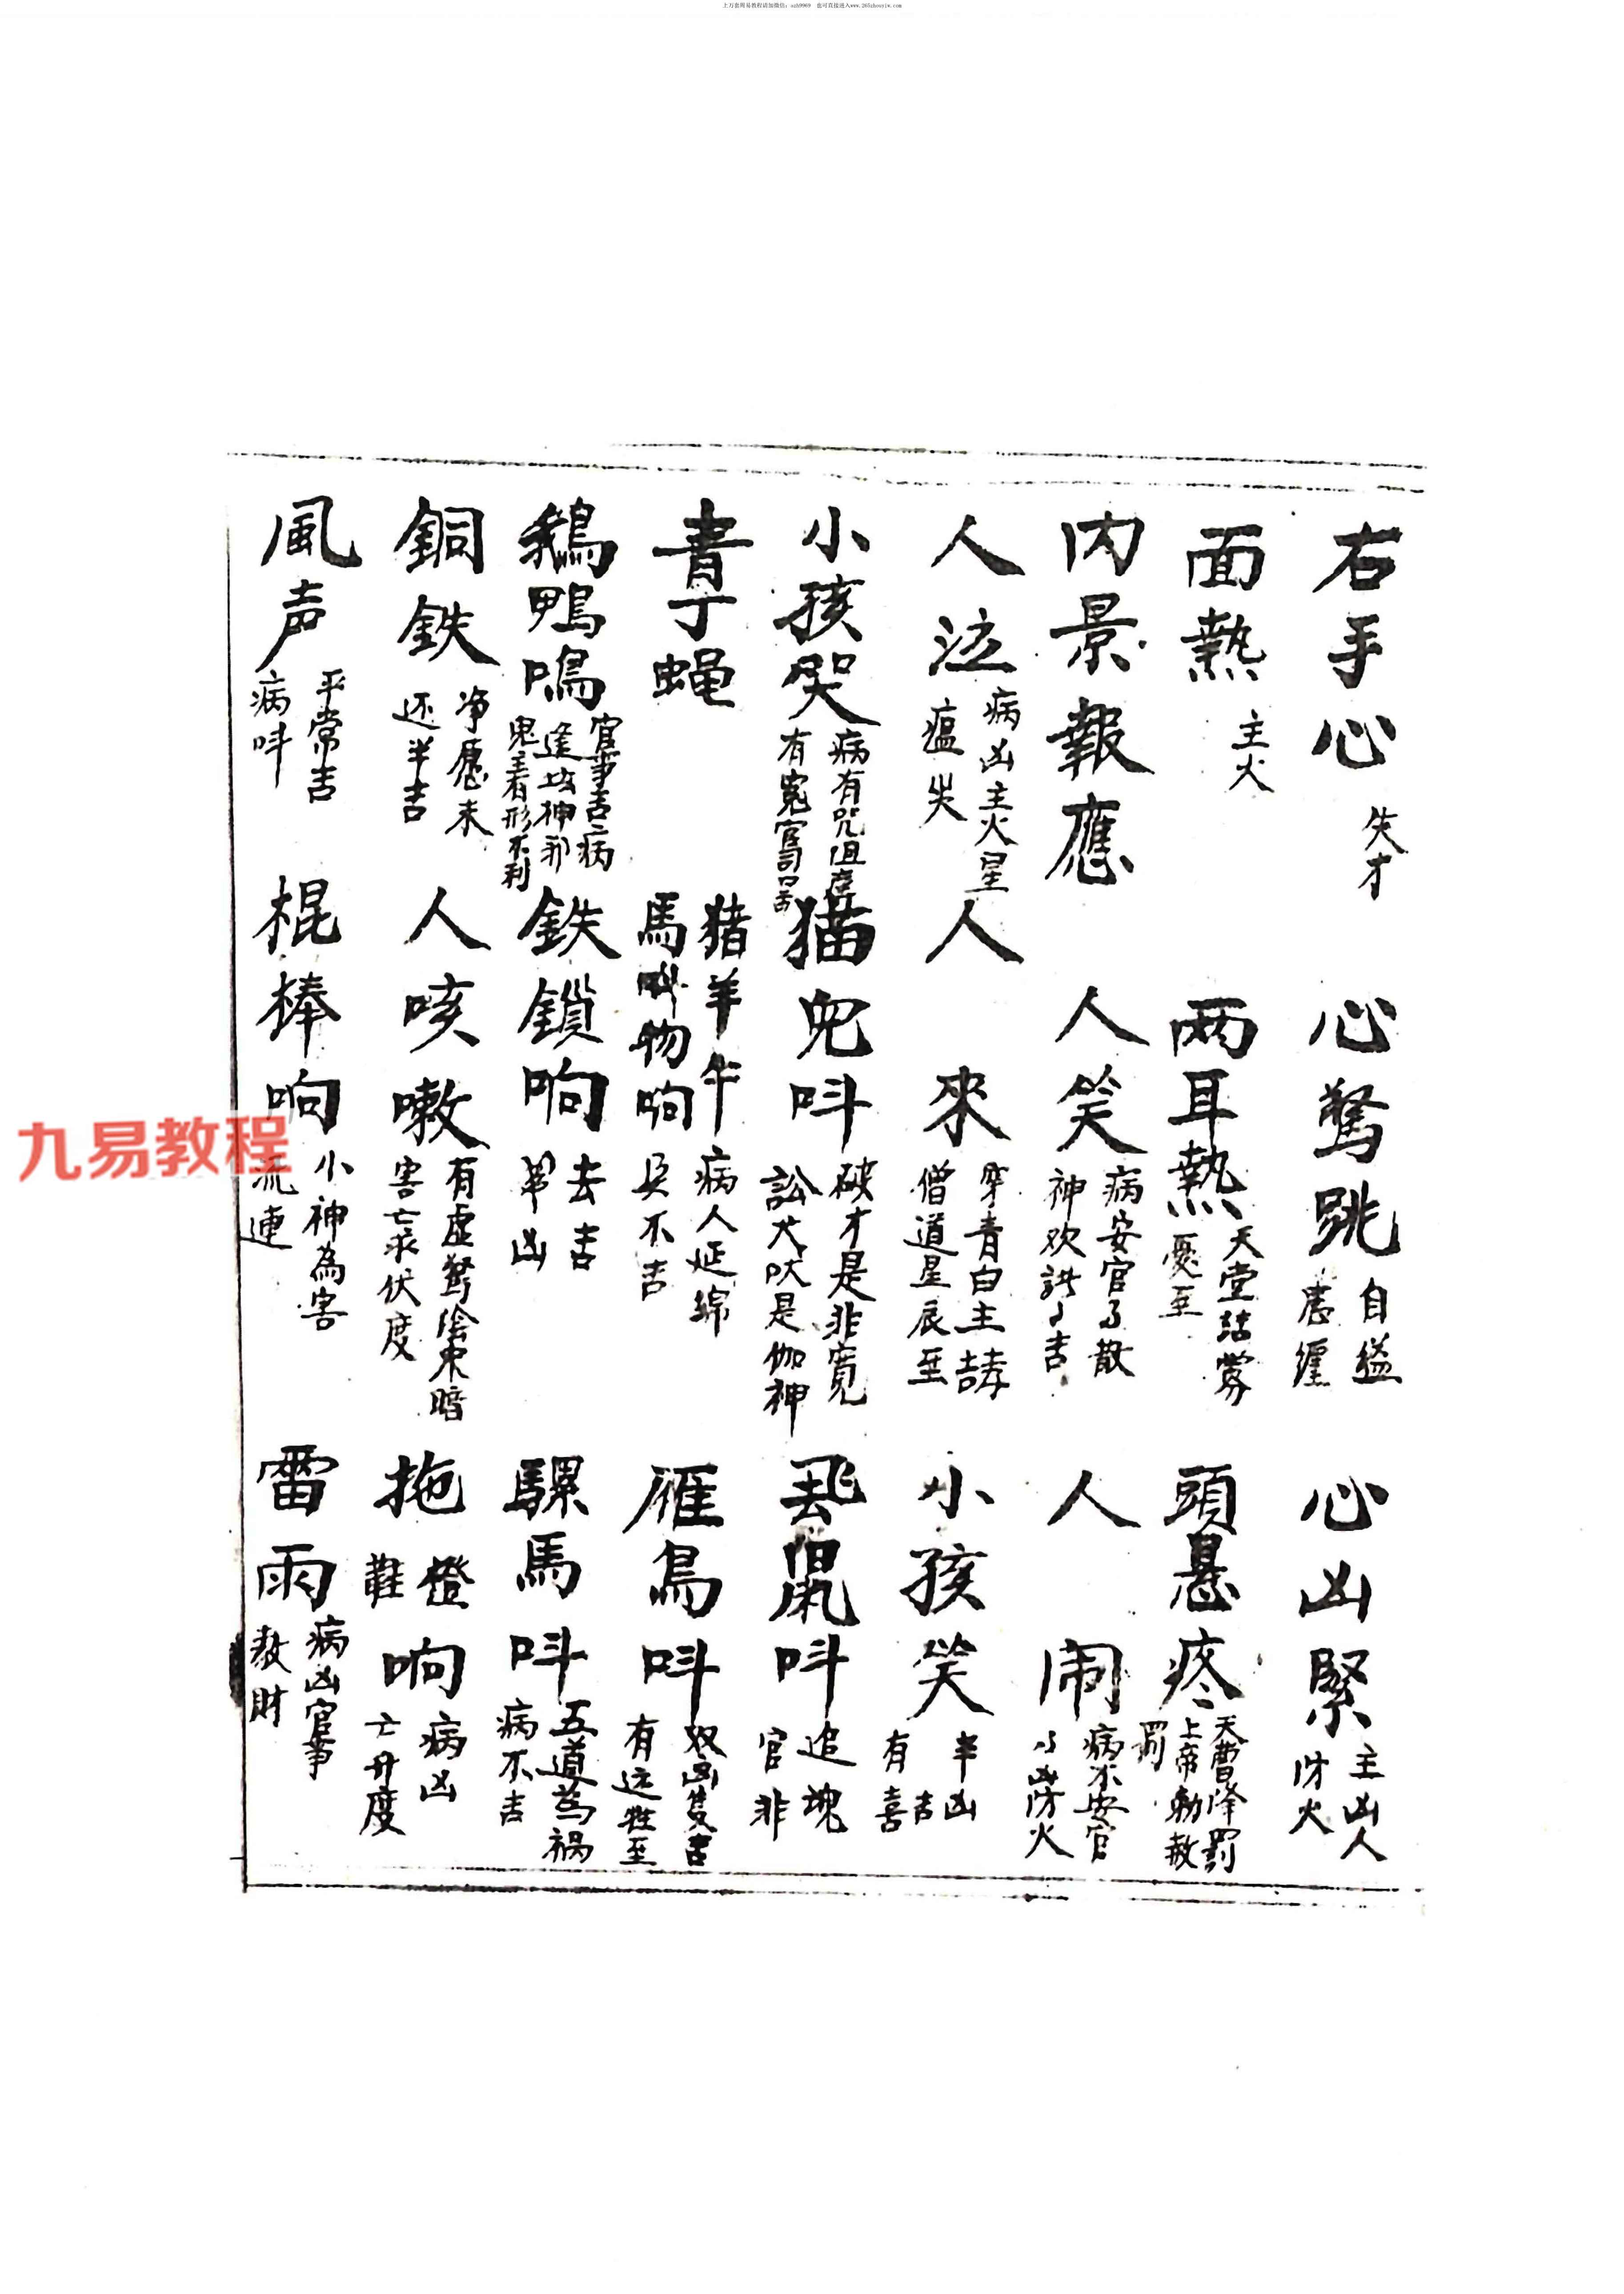 上万套周易教程请加微信：szh9969 也可直接进入www.265zhouyiw.com
右手心 失才 心驚跳 自縊 恚纏 心凶緊 主凶人 防火
面熱 主火 两耳熱 天堂 憂至 頭悬疼 天曹降罰 上帝勅赦 罰
内景報應 人笑 病安官了散 神欢 吉 人闹 病不安官 凶防火
人泣 病凶主火星 瘟失 人來 穿青白主 僧道星辰至 小孩笑 半凶吉 有喜
小孩哭 病有咒诅 有寃 猫兒呌 破才是非寬 訟犬吠是伽神 飛鼠呌 追魂 官非
青丁蝇 猪羊牛馬呌物响 病人延綿 不吉 雁鳥呌 双凶隻吉 有远 至
鵝鴨鳴 官事吉病 逢 神邪 鬼着形不利 鉄鎖响 去吉 凶 騾馬呌 五道為祸 病不吉
銅鉄 净愿未 还半吉 人咳嗽 有虚驚陰 暗 害亡 伏度 拖橙鞋响 病凶 亡升度
風声 平常吉 病呌 棍棒响 小神為害 流連 雷雨 病凶官事 財
九易教程